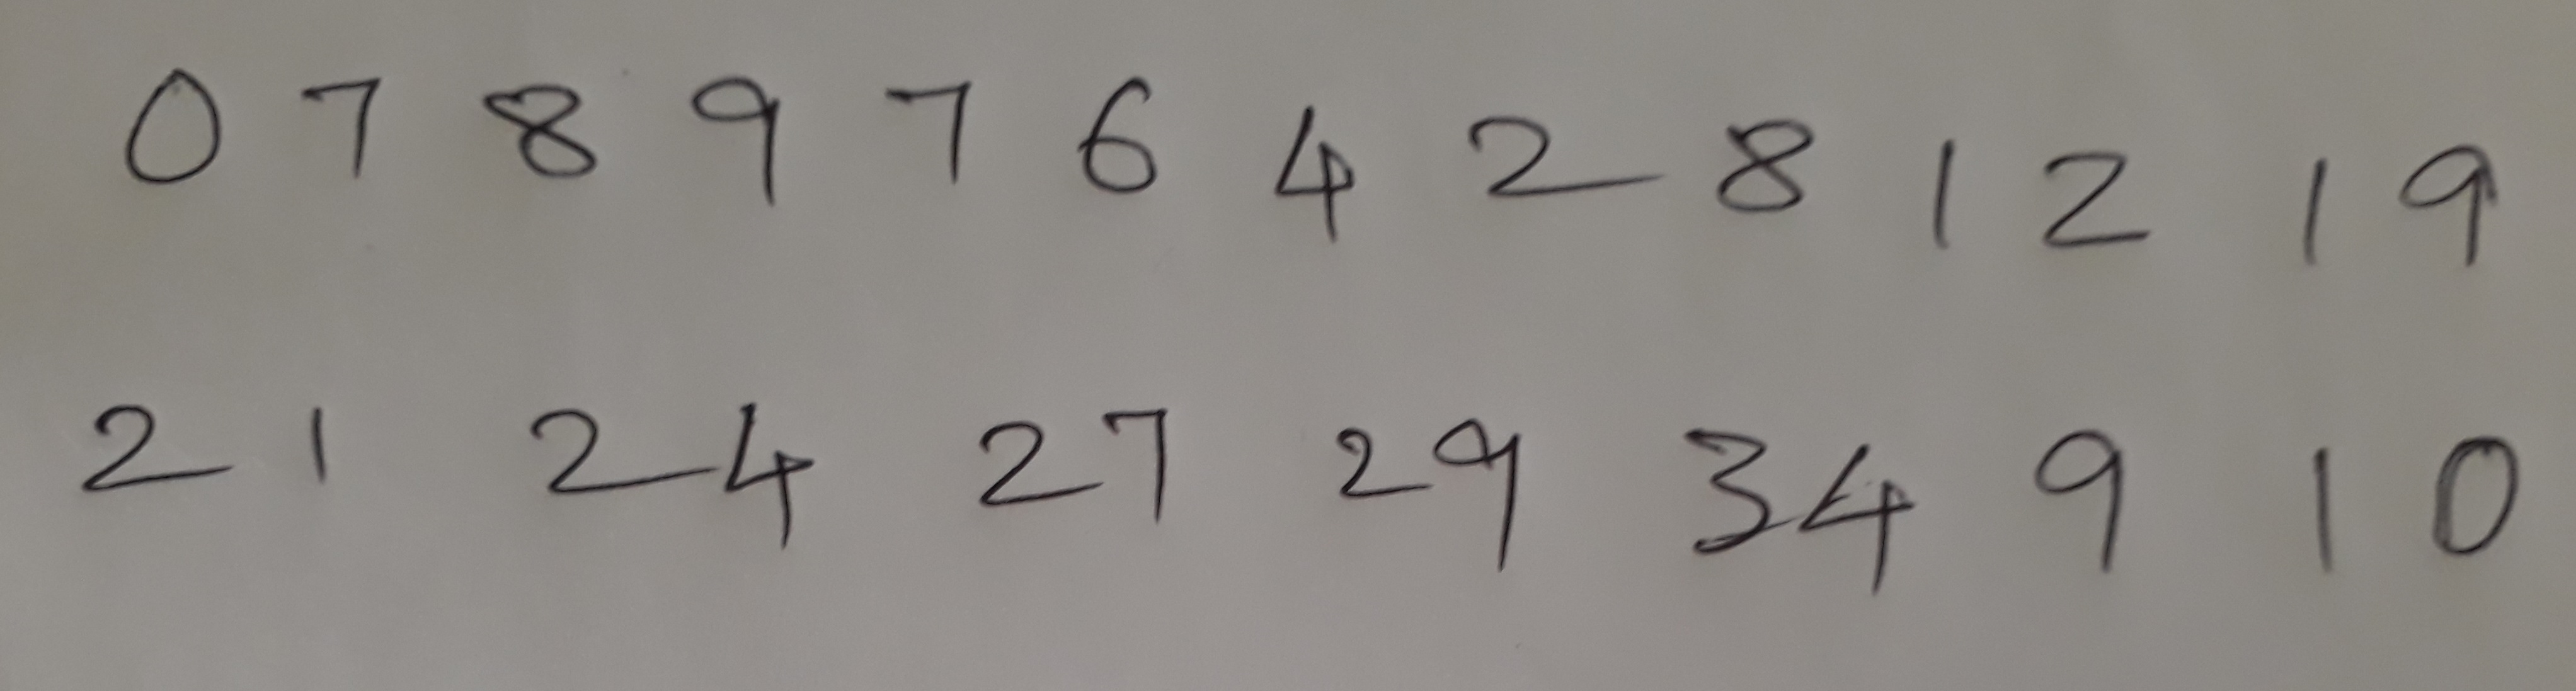 0 7 8 9 7 6 4 2 8 12 19
21 24 27 29 34 9 10